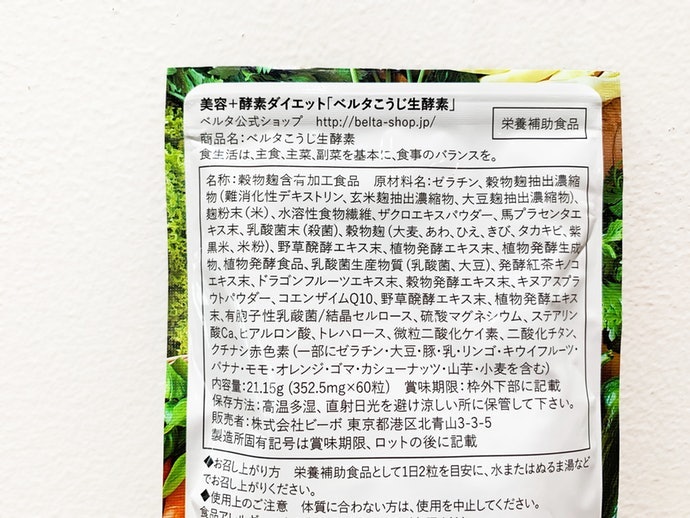 美容+酵素ダイエット「ベルタこうじ生酵素」
ベルタ公式ショップ http://belta-shop.jp/
栄養補助食品
商品名:ベルタこうじ生酵素
食生活は、主食、主菜、副菜を基本に、食事のバランスを。
名称:穀物麹含有加工食品 原材料名:ゼラチン、穀物麹抽出濃縮
物(難消化性デキストリン、玄米麹抽出濃縮物、大豆麹抽出濃縮物)、
麹粉末(米)、水溶性食物繊維、ザクロエキスパウダー、馬プラセンタエ
キス末、乳酸菌末(殺菌)、穀物麹(大麦、あわ、ひえ、きび、タカキビ、紫
黒米、米粉)、野草醗酵エキス末、植物発酵エキス末、植物発酵生成
物、植物発酵食品、乳酸菌生産物質(乳酸菌、大豆)、発酵紅茶キノコ
エキス末、ドラゴンフルーツエキス末、穀物発酵エキス末、キヌアスプラ
ウトパウダー、コエンザイムQ10、野草醗酵エキス末、植物発酵エキス
末、有胞子性乳酸菌/結晶セルロース、硫酸マグネシウム、ステアリン
酸Ca、ヒアルロン酸、トレハロース、微粒二酸化ケイ素、二酸化チタン、
クチナシ赤色素(一部にゼラチン・大豆・豚・乳・リンゴ・キウイフルーツ・
バナナ・モモ・オレンジ・ゴマ・カシューナッツ・山芋・小麦を含む)
内容量:21.15g(352.5mg×60粒) 賞味期限:枠外下部に記載
保存方法:高温多湿、直射日光を避け涼しい所に保管して下さい。
販売者:株式会社ビーボ 東京都港区北青山3-3-5
製造所固有記号は賞味期限、ロットの後に記載
◆お召し上がり方 栄養補助食品として1日2粒を目安に、水またはぬるま湯など
でお召し上がりください。
◆使用上のご注意 体質に合わない方は、使用を中止してください。
食品アレルギー